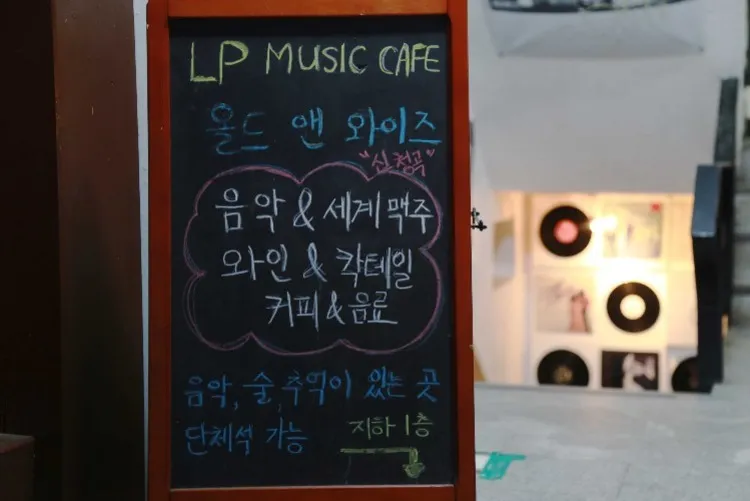 LP MUSIC CAFE
올드 앤 와이즈
"신청곡"
음악 & 세계맥주
와인 & 칵테일
커피 & 음료
음악, 술, 추억이 있는 곳
단체석 가능
지하 1층